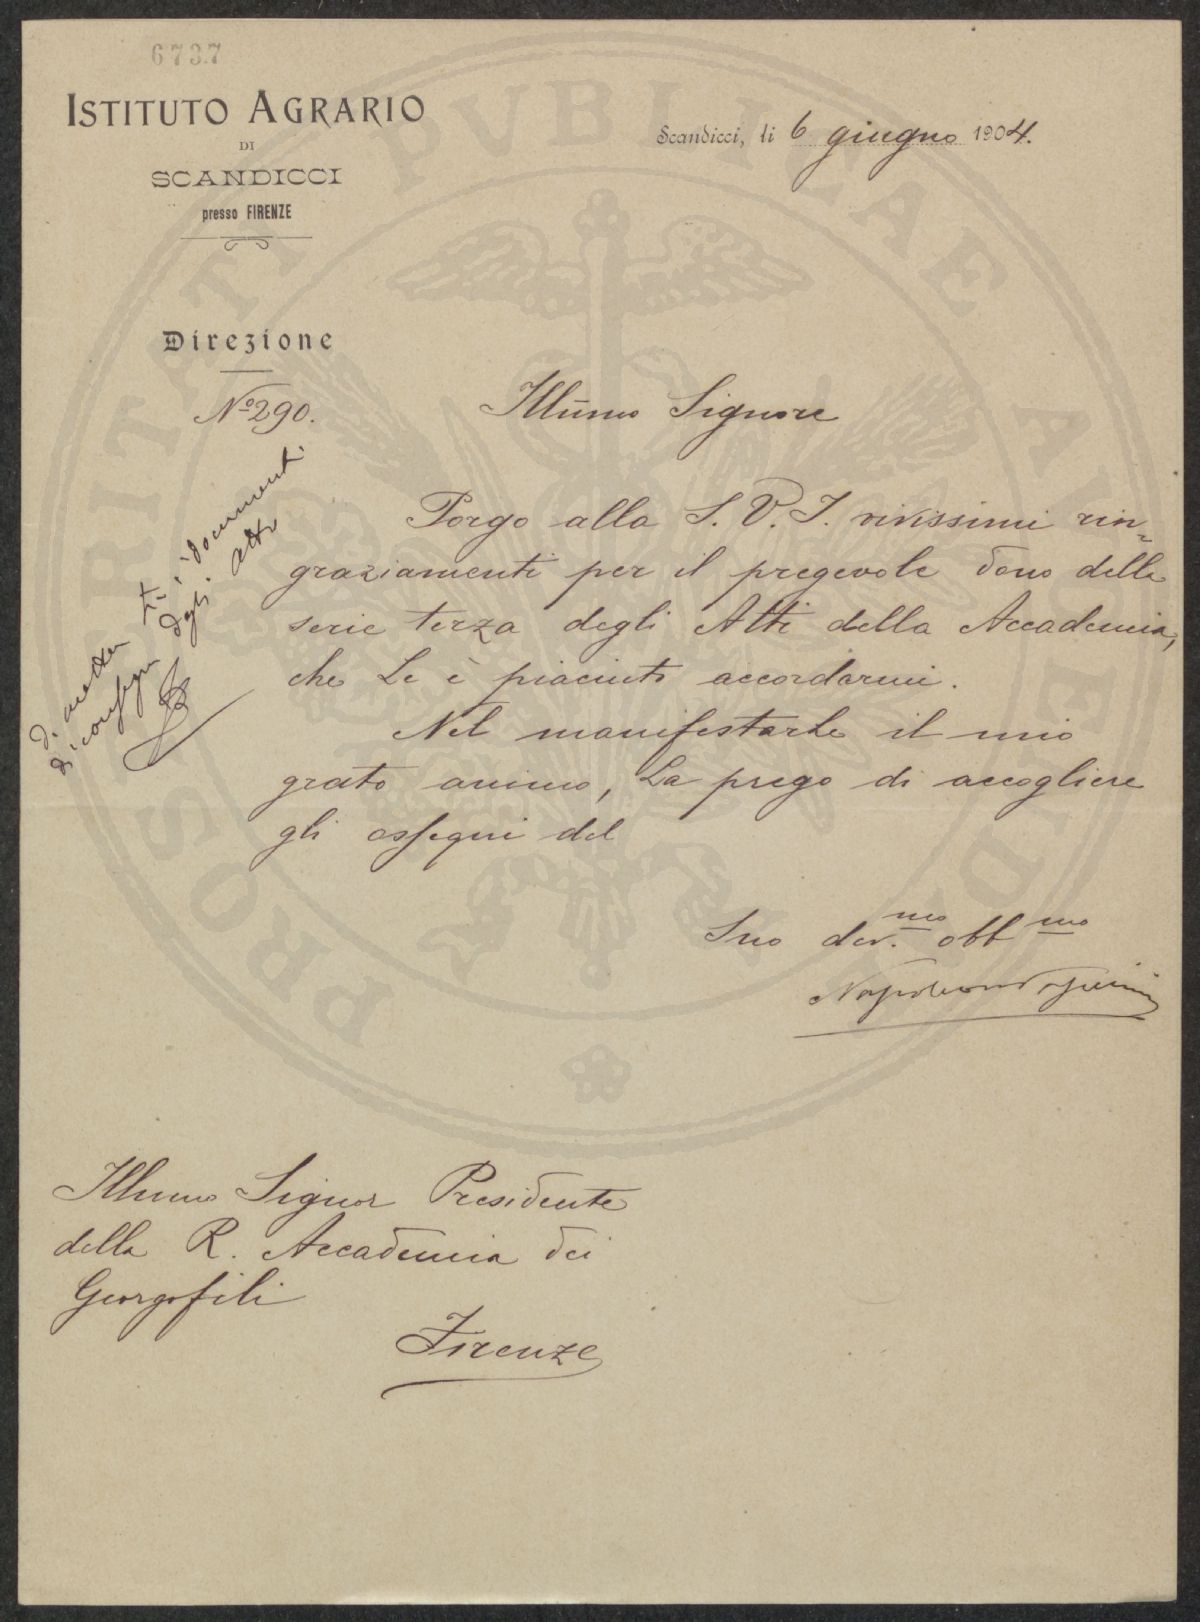 6737
ISTITUTO AGRARIO
DI
SCANDICCI
presso FIRENZE
Scandicci, li 6 giugno 1904.
Direzione
Nº 290.
Illūmo Signore
Porgo alla S. V. I. vivissimi rin-
graziamenti per il pregevole dono della
serie terza degli Atti della Accademia,
che Le è piaciuto accordarmi.
Nel manifestarLe il mio
grato animo, La prego di accogliere
gli ossequi del
Suo dev.mo obbmo
Napoleone Passerini
Di metter tra i documenti
di consegna degli atti
Illumo Signor Presidente
della R. Accademia dei
Georgofili
Firenze
PROSPERITATI PVBLICAE AVGENDAE